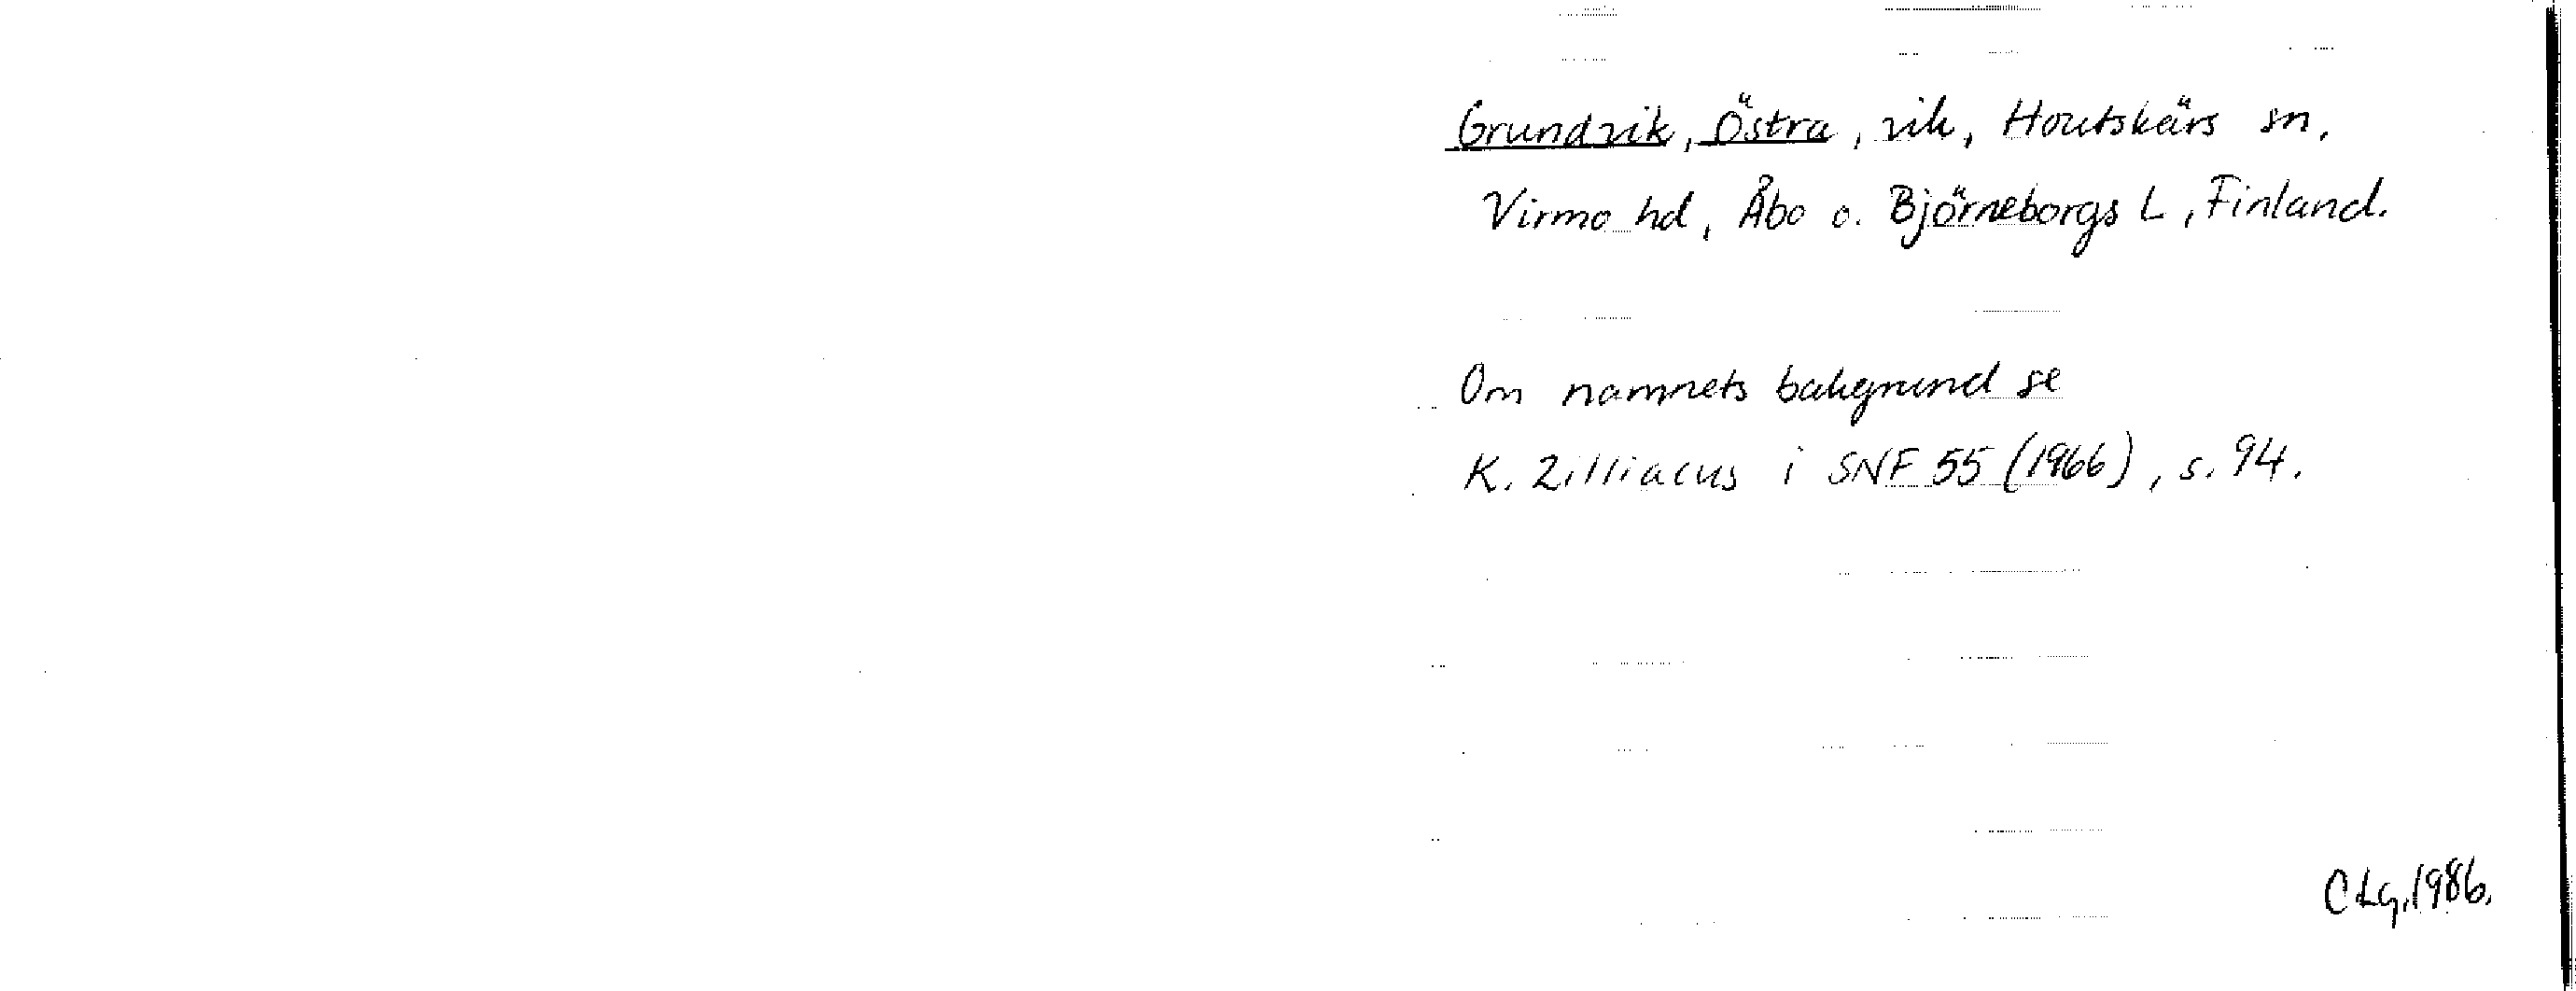 Grundvik, Östra, vik, Houtskärs sn,
Virmo hd, Åbo o. Björneborgs L, Finland.
Om namnets bakgrund se
K. Zilliacus i SNF 55 (1966), s. 94.
CLg, 1986.